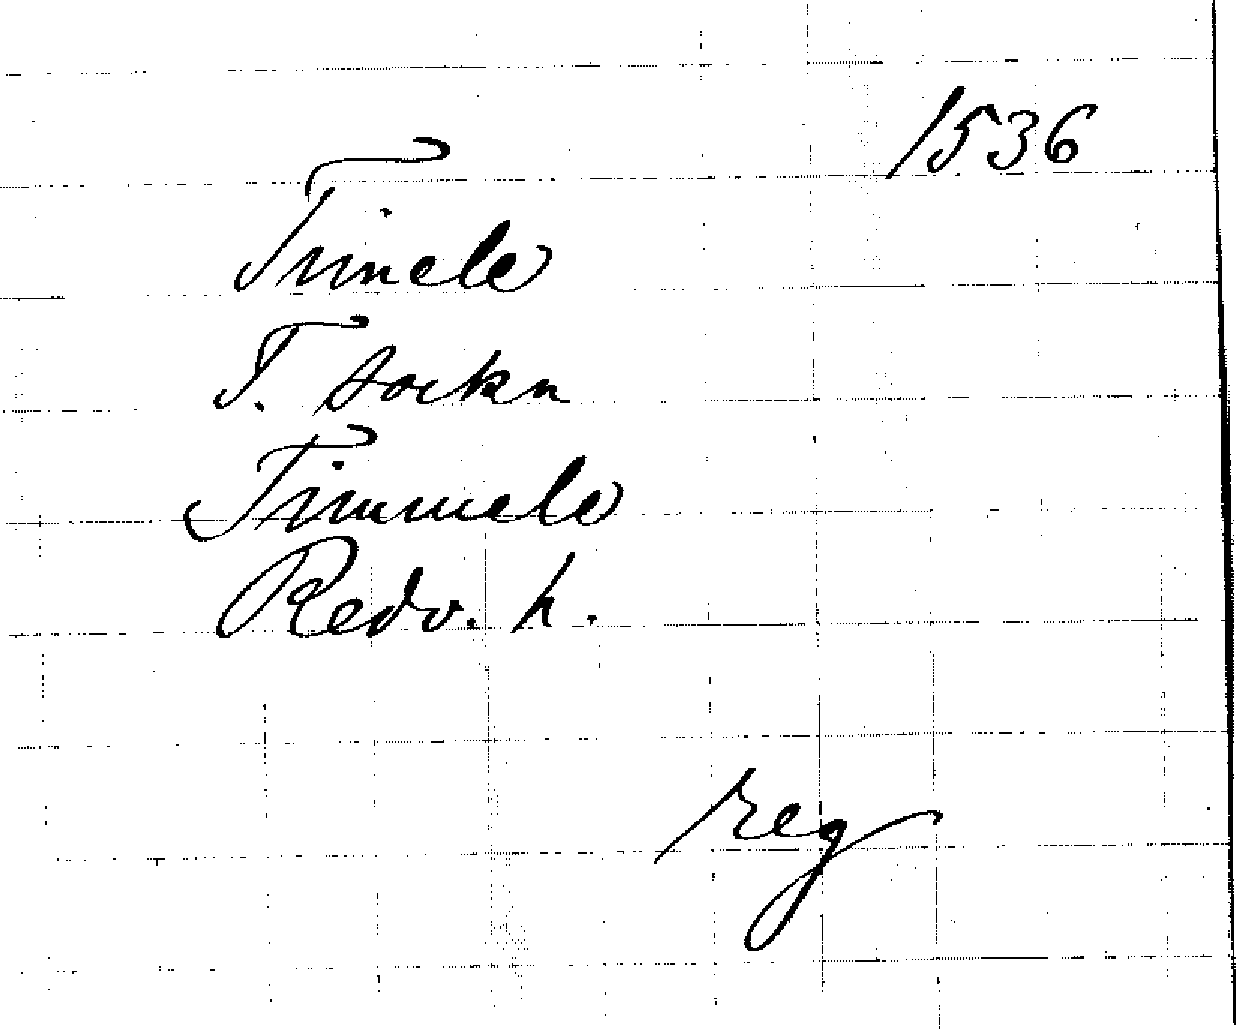 1536
Timele
T. sockn
Timmele
Redv. h.
reg